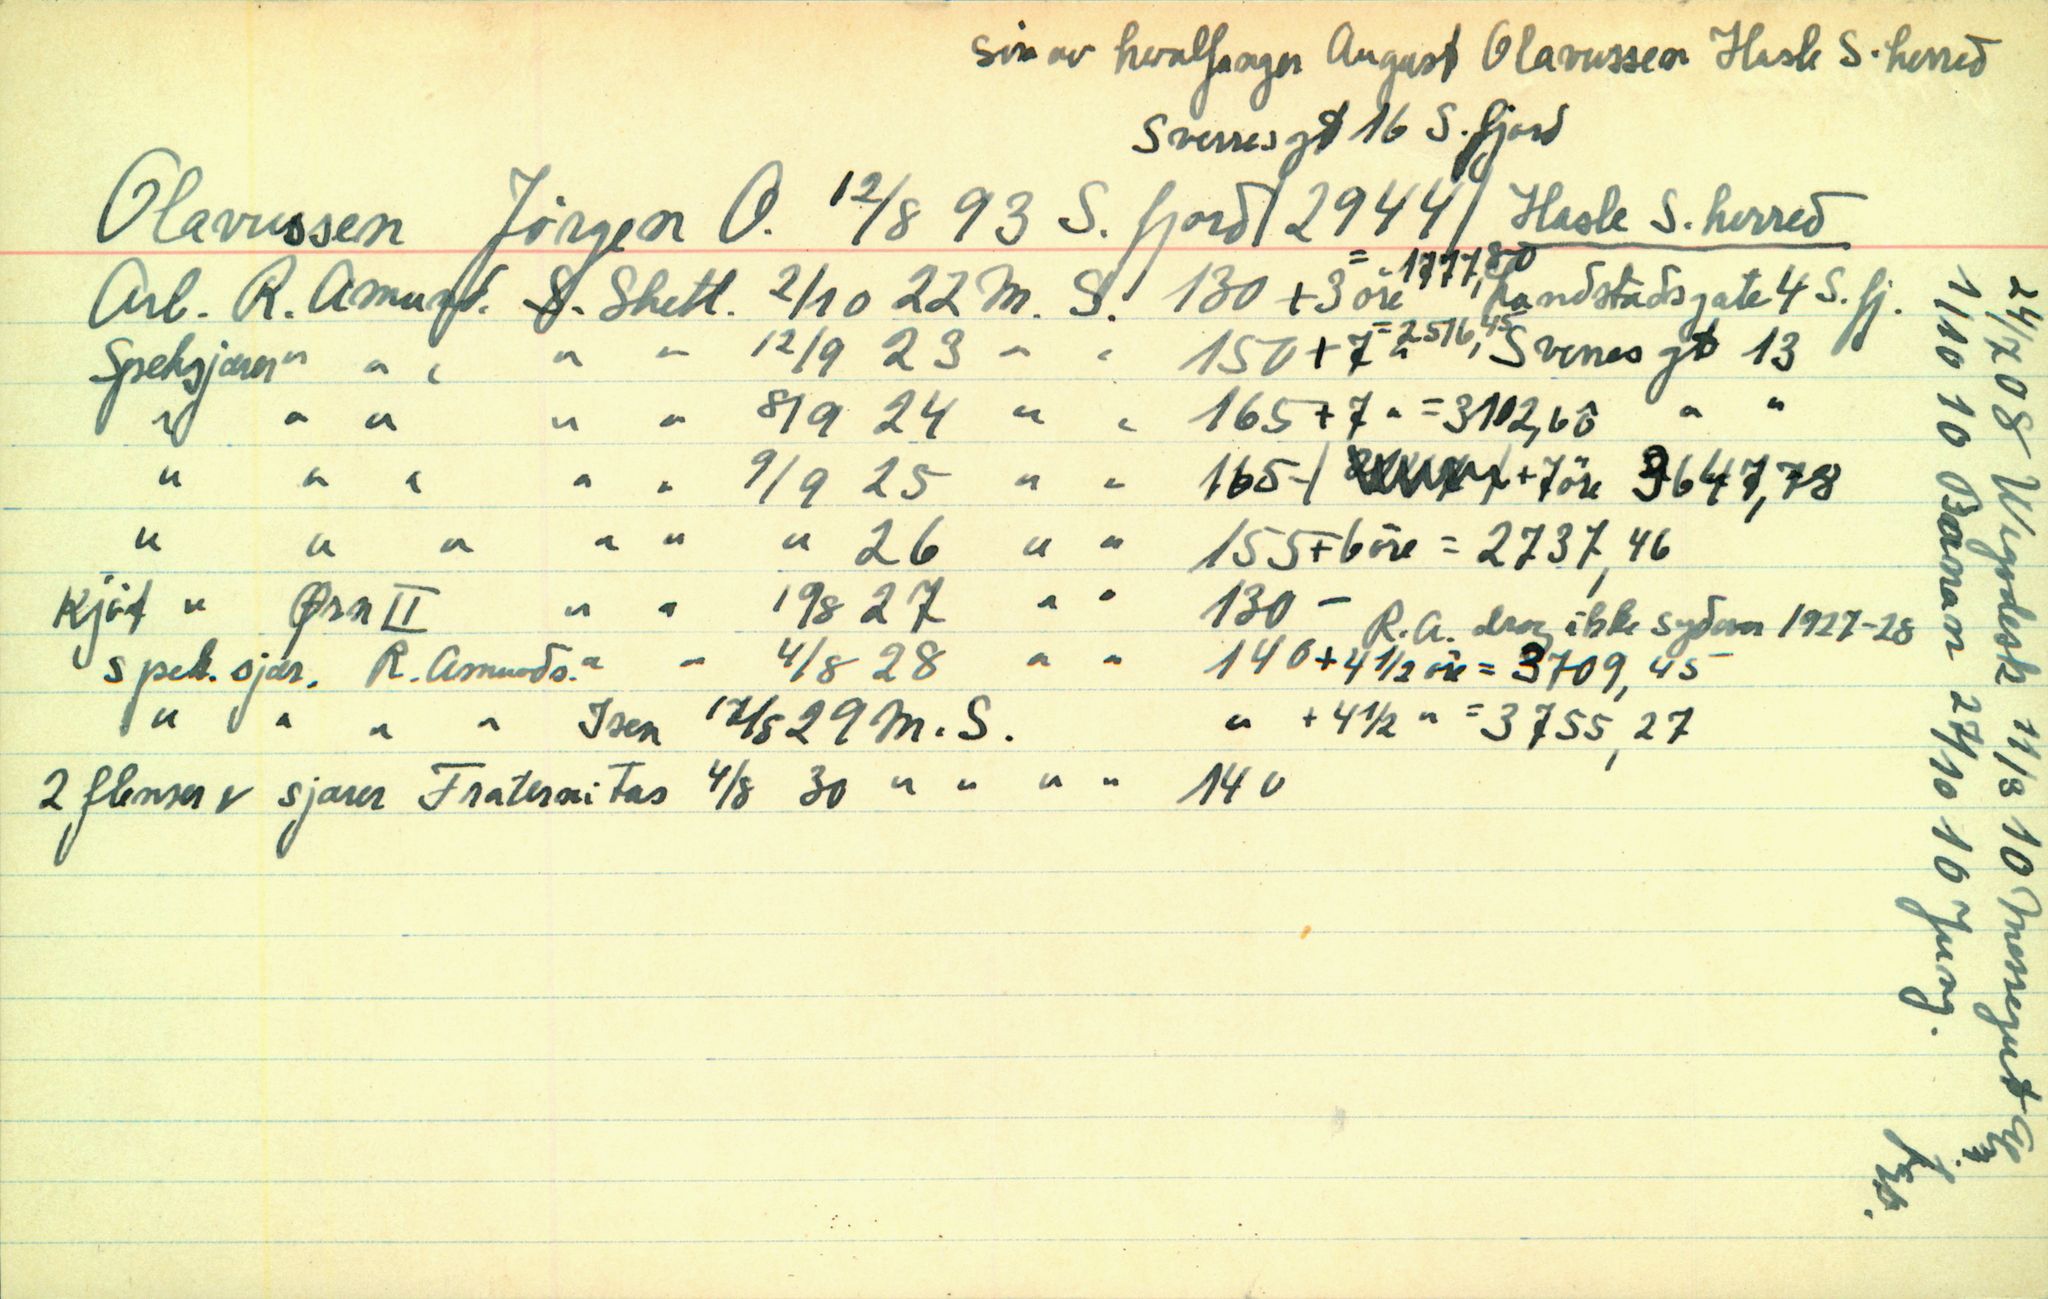 Søn av hvalfanger August Olavussen Hasle S. herred
Sverresgt 16 S. fjord
Olavussen Jörgen O. 12/8 93 S. fjord / 2944 / Hasle S. herred
= 1777,80
Arb. R. Amund. S. Shetl. 2/10 22 M. S. 130 + 3 öre Landstadsgate 4 S. fj.
Speksjærer " " " " " 12/9 23 " " 150 + 7 " = 2516,45 Sverresgt 13
" " " " " 8/9 24 " " 165 + 7 " = 3102,60 " "
" " " " " 9/9 25 " " 165 - / + 7 öre 3647,78
" " " " " " 26 " " 155 + 6 öre = 2737,46
Kjöt " Ørn II " " 19/8 27 " " 130 -
R.A. drog ikke sydover 1927-28
spek. sjær. R. Amunds. " " 4/8 28 " " 140 + 4 1/2 öre = 3709,45
" " " " Isen 17/8 29 M. S. " + 4 1/2 " = 3755,27
2 flenser & sjærer Fraternitas 4/8 30 " " " " 140
24/7 08 11/8 10 Messegut
1/10 10 27/10 10 Jung.